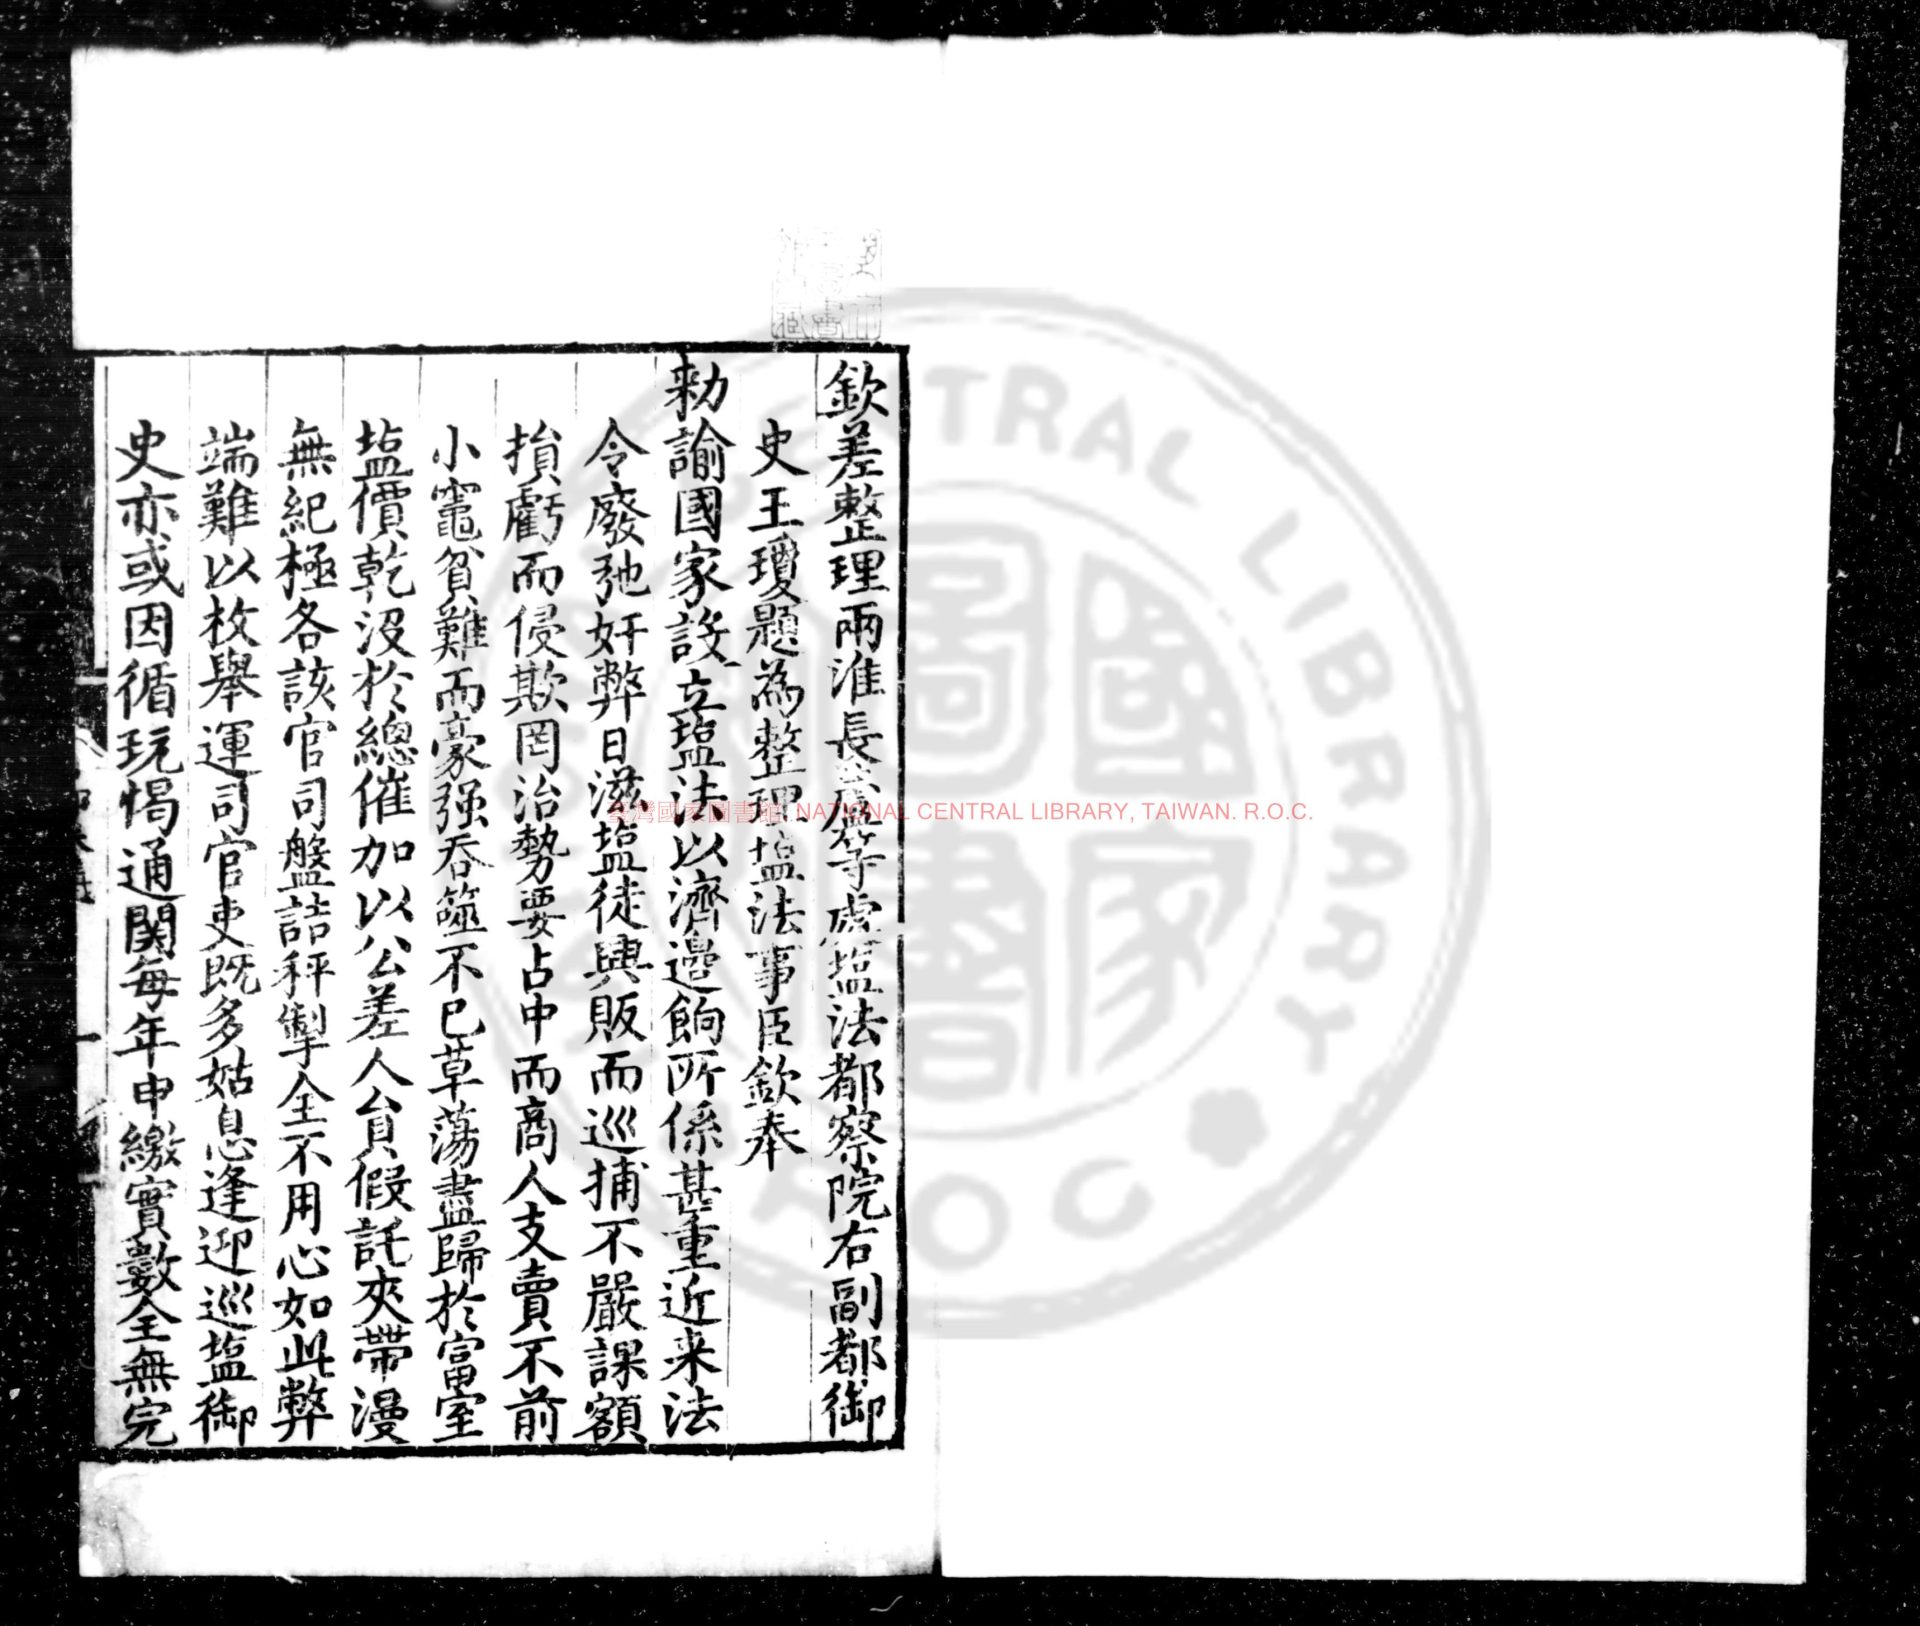 欽差整理兩淮長蘆等處塩法都察院右副都御
史王瓊題為整理塩法事臣欽奉
勑諭國家設立塩法以濟邉餉所係甚重近来法
令廢弛奸弊日滋塩徒興販而巡捕不嚴課額
損虧而侵欺罔治勢要占中而商人支賣不前
小竈貧難而豪强吞噬不已草蕩盡歸於富室
塩價乾沒於總催加以公差人員假託夾帶漫
無紀極各該官司盤詰秤掣全不用心如此弊
端難以枚舉運司官吏既多姑息逢迎巡塩御
史亦或因循玩愒通関每年申繳實數全無完
臺灣國家圖書館.NATIONAL CENTRAL LIBRARY, TAIWAN. R.O.C.
CENTRAL LIBRARY